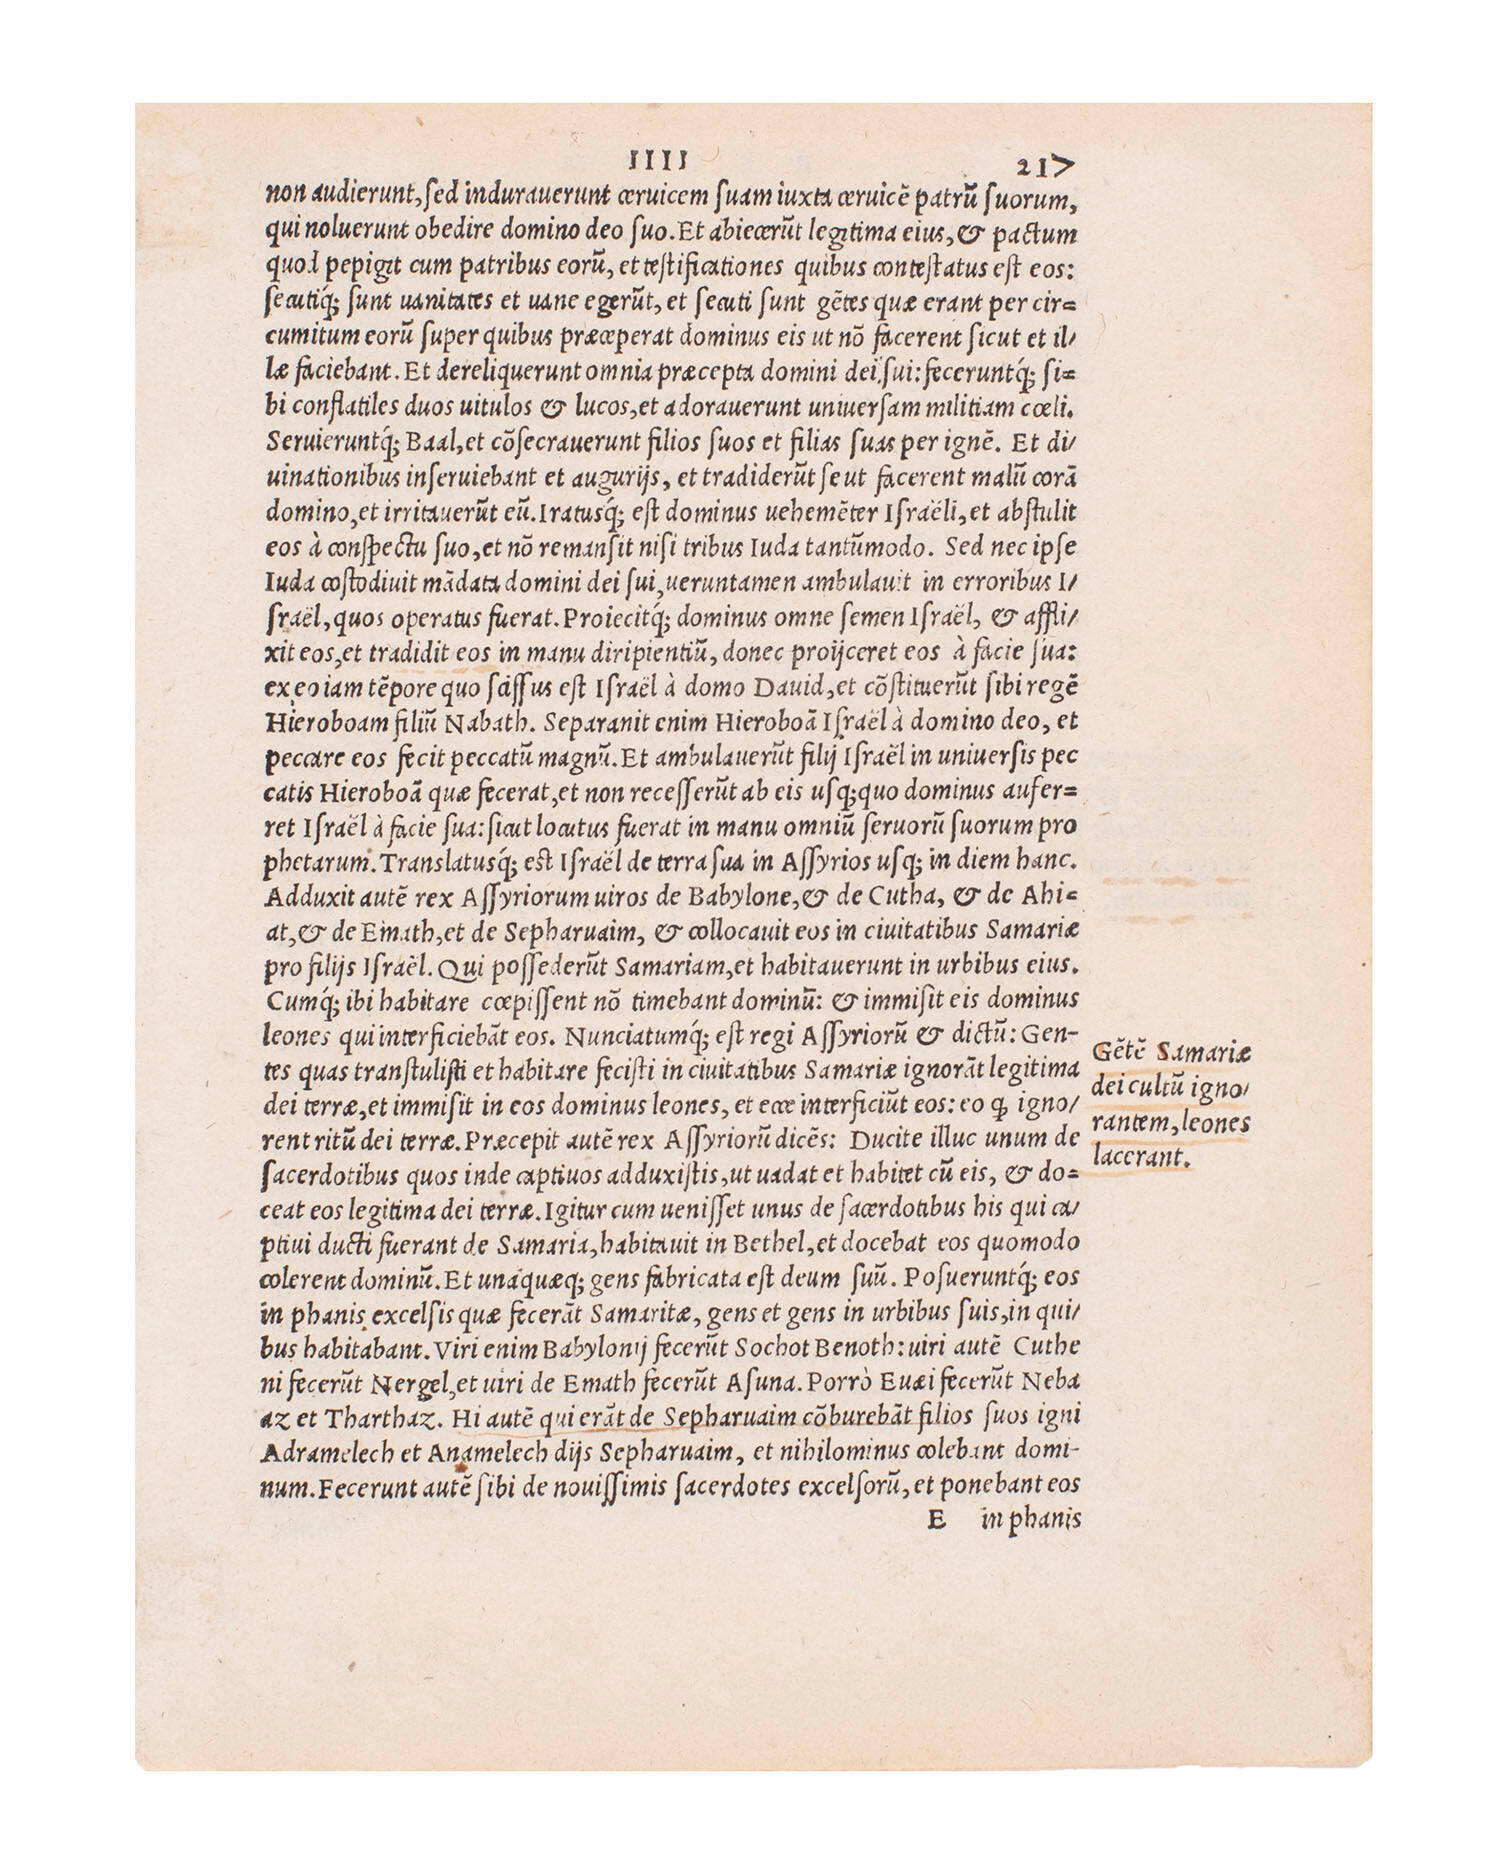 IIII 217
non audierunt, ſed indurauerunt ceruicem ſuam iuxta ceruicē patrū ſuorum,
qui noluerunt obedire domino deo ſuo. Et abiecerūt legitima eius, & pactum
quod pepigit cum patribus eorū, et teſtificationes quibus conteſtatus eſt eos:
ſecutiq́; ſunt uanitates et uane egerūt, et ſecuti ſunt gētes quæ erant per cir=
cumitum eorū ſuper quibus præceperat dominus eis ut nō facerent ſicut et il/
læ faciebant. Et dereliquerunt omnia præcepta domini dei ſui: feceruntq́; ſi=
bi conflatiles duos uitulos & lucos, et adorauerunt uniuerſam militiam cœli.
Seruieruntq́; Baal, et cōſecrauerunt filios ſuos et filias ſuas per ignē. Et di/
uinationibus inſeruiebant et augurijs, et tradiderūt ſe ut facerent malū corā
domino, et irritauerūt eū. Iratusq́; eſt dominus uehemēter Iſraëli, et abſtulit
eos à conſpectu ſuo, et nō remanſit niſi tribus Iuda tantūmodo. Sed nec ipſe
Iuda coſtodiuit mādata domini dei ſui, ueruntamen ambulauit in erroribus I/
ſraël, quos operatus fuerat. Proiecitq́; dominus omne ſemen Iſraël, & affli/
xit eos, et tradidit eos in manu diripientiū, donec proijceret eos à facie ſua:
ex eo iam tēpore quo ſciſſus eſt Iſraël à domo Dauid, et cōſtituerūt ſibi regē
Hieroboam filiū Nabath. Separanit enim Hieroboā Iſraël à domino deo, et
peccare eos fecit peccatū magnū. Et ambulauerūt filij Iſraël in uniuerſis pec
catis Hieroboā quæ fecerat, et non receſſerūt ab eis uſq; quo dominus aufer=
ret Iſraël à facie ſua: ſicut locutus fuerat in manu omniū ſeruorū ſuorum pro
phetarum. Translatusq́; est Iſraël de terra ſua in Aſſyrios uſq; in diem hanc.
Adduxit autē rex Aſſyriorum uiros de Babylone, & de Cutha, & de Ahi=
at, & de Emath, et de Sepharuaim, & collocauit eos in ciuitatibus Samariæ
pro filijs Iſraël. Qui poſſederūt Samariam, et habitauerunt in urbibus eius.
Cumq́; ibi habitare cœpiſſent nō timebant dominū: & immiſit eis dominus
leones qui interficiebāt eos. Nunciatumq́; eſt regi Aſſyriorū & dictū: Gen-
tes quas tranſtuliſti et habitare feciſti in ciuitatibus Samariæ ignorāt legitima
dei terræ, et immiſit in eos dominus leones, et ecce interficiūt eos: eo ꝙ igno/
rent ritū dei terræ. Præcepit autē rex Aſſyriorū dicēs: Ducite illuc unum de
ſacerdotibus quos inde captiuos adduxiſtis, ut uadat et habitet cū eis, & do=
ceat eos legitima dei terræ. Igitur cum ueniſſet unus de ſacerdotibus his qui ca/
ptiui ducti fuerant de Samaria, habitauit in Bethel, et docebat eos quomodo
colerent dominū. Et unaquæq; gens fabricata eſt deum ſuū. Poſueruntq́; eos
in phanis excelſis quæ fecerāt Samaritæ, gens et gens in urbibus ſuis, in qui/
bus habitabant. Viri enim Babylonij fecerūt Sochot Benoth: uiri autē Cuthe
ni fecerūt Nergel, et uiri de Emath fecerūt Aſuna. Porrò Euæi fecerūt Neba
az et Tharthaz. Hi autē qui erāt de Sepharuaim cōburebāt filios ſuos igni
Adramelech et Anamelech dijs Sepharuaim, et nihilominus colebant domi-
num. Fecerunt autē ſibi de nouiſſimis ſacerdotes excelſorū, et ponebant eos
E in phanis
Gētē Samariæ
dei cultū igno/
rantem, leones
lacerant.